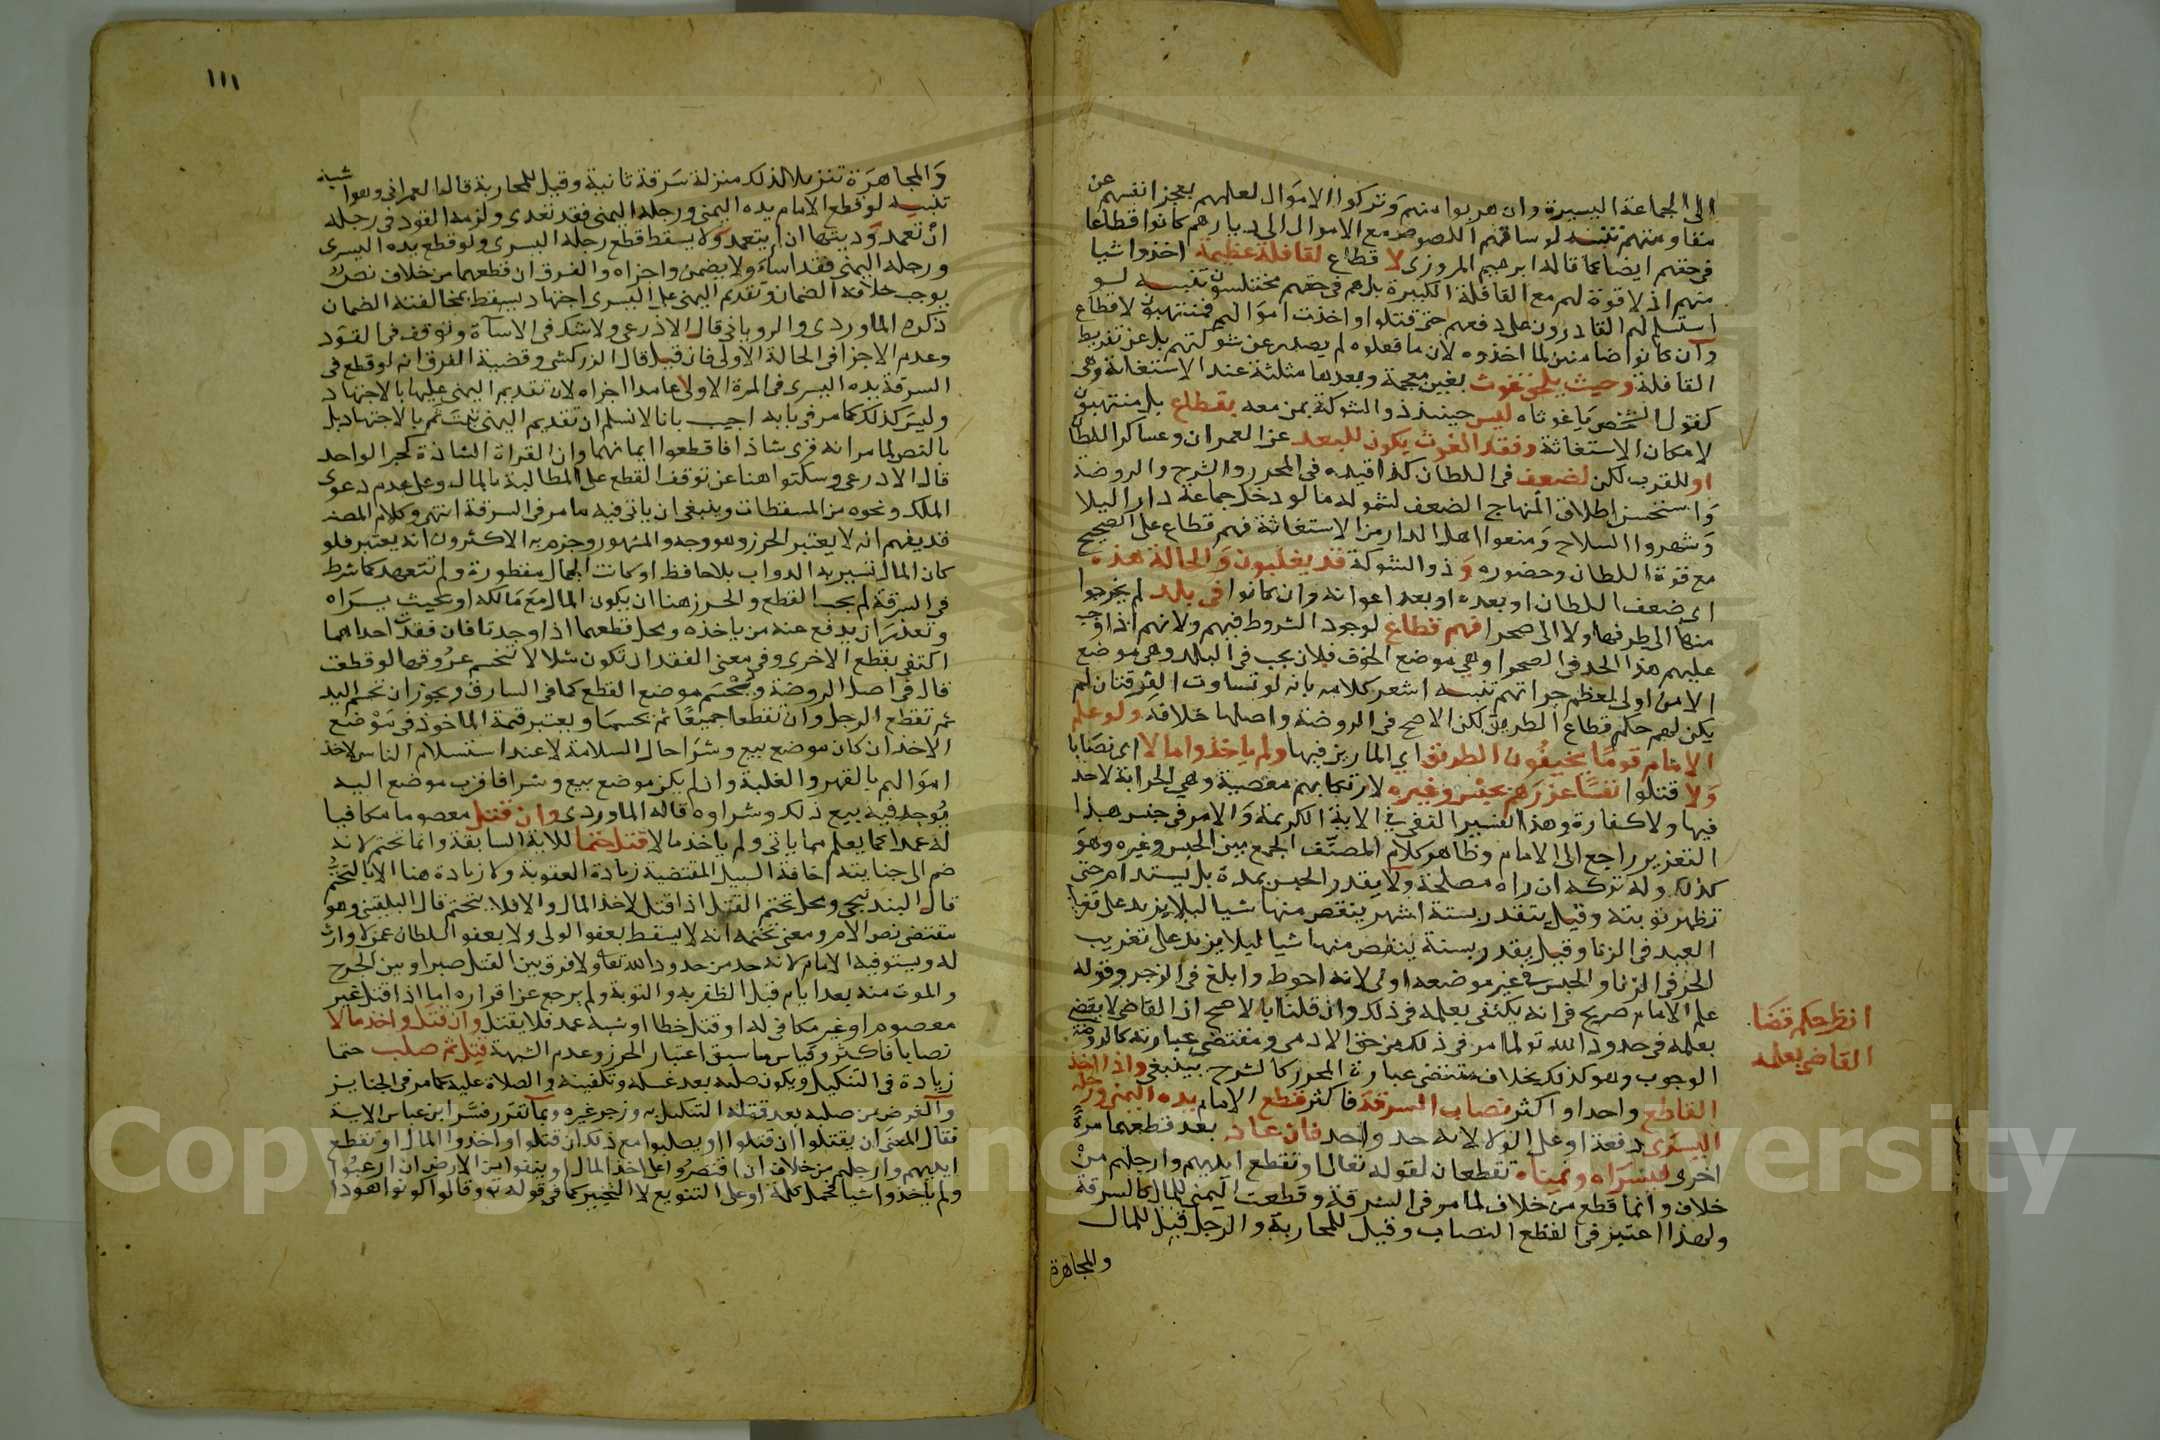 الى الجماعة اليسيرة وان هربوا منهم وتركوا الاموال لعلمهم بعجز انفسهم عن
مقاومتهم تنبيه لو ساقهم اللصوص مع الاموال الى ديارهم كانوا قطاعا
في حقهم ايضا كما قاله ابرهيم المروزي لا قطاع لقافلة عظيمة اخذوا شيا
منهم اذ لا قوة لهم مع القافلة الكبيرة بل هم في حقهم مختلسون تنبيه لو
استسلم لهم القادرون على دفعهم حتى قتلوا او اخذت اموالهم فمنتهبون لا قطاع
وان كانوا ضامنين لما اخذوه لان ما فعلوه لم يصدر عن شوكتهم بل عن تفريط
القافلة وحيث يلحق غوث بغين معجمة وبعدها مثلثة عند الاستغاثة وهي
كقول الشخص يا غوثاه ليس حينيذ ذو الشوكة بمن معه بقطاع بل منتهبون
لامكان الاستغاثة وفقد الغوث يكون للبعد عن العمران وعساكر السلطان
او للقرب لكن لضعف في السلطان كذا قيده في المحرر والشرح والروضة
واستحسن اطلاق المنهاج الضعف لشموله ما لو دخل جماعة دارا ليلا
وشهروا السلاح ومنعوا اهل الدار من الاستغاثة فهم قطاع على الصحيح
مع قوة السلطان وحضوره وذو الشوكة قد يغلبون والحالة هذه
اي ضعف السلطان او بعده او بعد اعوانه وان كانوا في بلد لم يخرجوا
منها الى طرفها ولا الى صحرا فهم قطاع لوجود الشروط فيهم ولانهم اذا وجب
عليهم هذا الحد في الصحرا وهي موضع الخوف فلان يجب في البلد وهي موضع
الامن اولى لعظم جراتهم تنبيه اشعر كلامه بانه لو تساوت الفرقتان لم
يكن لهم حكم قطاع الطريق لكن الاصح في الروضة واصلها خلافه ولو علم
الامام قوما يخيفون الطريق اي المارين فيها ولم ياخذوا مالا اي نصابا
ولا قتلوا نفسا عزرهم بحبس وغيره لارتكابهم معصية وهي الحرابة لا حد
فيها ولا كفارة وهذا تفسير النفي في الاية الكريمة والامر في جنس هذا
التعزير راجع الى الامام وظاهر كلام المصنف الجمع بين الحبس وغيره وهو
كذلك وله تركه ان راه مصلحة ولا يقدر الحبس بمدة بل يستدام حتى
تظهر توبته وقيل يتقدر بستة اشهر ينقص منها شيا ليلا يزيد على تغريب
العبد في الزنا وقيل يقدر بسنة ينقص منها شيا ليلا يزيد على تغريب
الحر في الزنا والحبس في غير موضعه اولى لانه احوط وابلغ في الزجر وقوله
علم الامام صريح في انه يكتفى بعلمه في ذلك وان قلنا بالاصح ان القاضي لا يقضي
بعلمه في حدود الله تعالى لما مر في ذلك من حق الادمي ومقتضى عبارته كالروضة
الوجوب وهو كذلك بخلاف مقتضى عبارة المحرر كالشرح بينبغي واذا اخذ
القاطع واحدا او اكثر نصاب السرقة فاكثر قطع الامام يده اليمنى ورجله
اليسرى دفعة او على الولا لانه حد واحد فان عاد بعد قطعهما مرة
اخرى فيسراه ويمناه تقطعان لقوله تعالى او تقطع ايديهم وارجلهم من
خلاف وانما قطع من خلاف لما مر في السرقة وقطعت اليمنى للمال كالسرقة
ولهذا اعتبر في القطع النصاب وقيل للمحاربة والرجل قيل للمال
والمجاهرة
انظر حكم قضا
القاضي بعلمه
١١١
والمجاهرة تنزيلا لذلك منزلة سرقة ثانية وقيل للمحاربة قاله العمراني وهو اشبه
تنبيه لو قطع الامام يده اليمنى ورجله اليمنى فقد تعدى ولزمه القود في رجله
ان تعمد وديتها ان لم يتعمد ولا يسقط قطع رجله اليسرى ولو قطع يده اليسرى
ورجله اليمنى فقد اساء ولا يضمن واجزاه والفرق ان قطعهما من خلاف نص
يوجب خلافه الضمان وتقديم اليمنى على اليسرى اجتهاد يسقط بمخالفته الضمان
ذكره الماوردي والروياني قال الاذرعي ولا شك في الاسآة وتوقف في القود
وعدم الاجزا في الحالة الاولى فان قيل قال الزركشي وقضية الفرق انه لو قطع في
السرقة يده اليسرى في المرة الاولى عامدا اجزاه لان تقديم اليمنى عليها بالاجتهاد
وليس كذلك كما مر في بابه اجيب بانا لا نسلم ان تقديم اليمنى ثمت ثم بالاجتهاد بل
بالنص لما مر انه قرئ شاذا فاقطعوا ايمانهما وان القراة الشاذة كخبر الواحد
قال الاذرعي وسكتوا هنا عن توقف القطع على المطالبة بالمال وعلى عدم دعوى
الملك ونحوه من المسقطات وينبغي ان ياتي فيه ما مر في السرقة انتهى وكلام المصنف
قد يفهم انه لا يعتبر الحرز وهو وجه والمشهور وجزم به الاكثرون انه يعتبر فلو
كان المال تسير به الدواب بلا حافظ او كانت الجمال مقطورة ولم تتعهد كما شرط
في السرقة لم يجب القطع والحرز هنا ان يكون المال مع مالكه او بحيث يراه
وتعذر ان يدفع عنه من ياخذه ومحل قطعهما اذا وجدتا فان فقدت احداهما
اكتفي بقطع الاخرى وفي معنى الفقد ان تكون شلا لا تنحسم عروقها لو قطعت
قال في اصل الروضة ويحسم موضع القطع كما في السارق ويجوز ان تحسم اليد
ثم تقطع الرجل وان تقطعا جميعا ثم يحسما ويعتبر قيمة الماخوذ في موضع
الاخذ ان كان موضع بيع وشرا حال السلامة لا عند استسلام الناس لاخذ
اموالهم بالقهر والغلبة وان لم يكن موضع بيع وشرا فاقرب موضع اليه
يوجد فيه بيع ذلك وشراوه قاله الماوردي وان قتل معصوما مكافيا
له عمدا كما يعلم مما ياتي ولم ياخذ مالا قتل حتما للاية السابقة وانما تحتم لانه
ضم الى جنايته اخافة السبيل المقتضية زيادة العقوبة ولا زيادة هنا الا التحتم
قال البندنيجي ومحل تحتم القتل اذا قتل لاخذ المال والا فلا يتحتم قال البلقيني وهو
مقتضى نص الام ومعنى تحتمه انه لا يسقط بعفو الولي ولا بعفو السلطان عمن لا وارث
له ويستوفيه الامام لانه حد من حدود الله تعالى ولا فرق بين القتل صبرا وبين الجرح
والموت منه بعد ايام قبل الظفر به والتوبة ولم يرجع عن اقراره اما اذا قتل غير
معصوم او غير مكافي له او قتل خطا او شبه عمد فلا يقتل وان قتل واخذ مالا
نصابا فاكثر وقياس ما سبق اعتبار الحرز وعدم الشبهة قتل ثم صلب حتما
زيادة في التنكيل ويكون صلبه بعد غسله وتكفينه والصلاة عليه كما مر في الجنايز
والغرض من صلبه بعد قتله التنكيل به وزجر غيره وبما تقرر فسر ابن عباس الاية
فقال المعنى ان يقتلوا ان قتلوا او يصلبوا مع ذلك ان قتلوا واخذوا المال او تقطع
ايديهم وارجلهم من خلاف ان اقتصروا على اخذ المال او ينفوا من الارض ان ارعبوا
ولم ياخذوا شيا فحمل كلمة او على التنويع لا التخيير كما في قوله تعالى وقالوا كونوا هودا